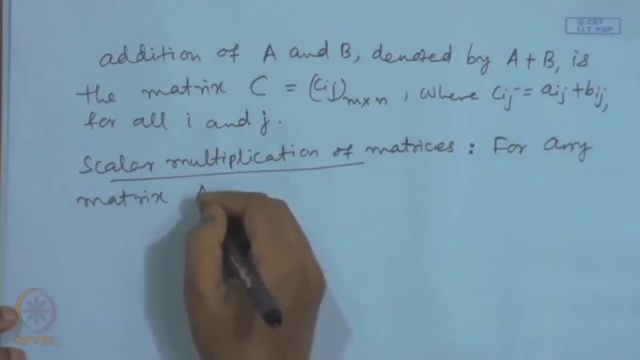 © CET
I.I.T. KGP
addition of A and B, denoted by A + B, is
the matrix C = (cij)m×n, where cij = aij + bij,
for all i and j.
Scalar multiplication of matrices : For any
matrix A
NPTEL